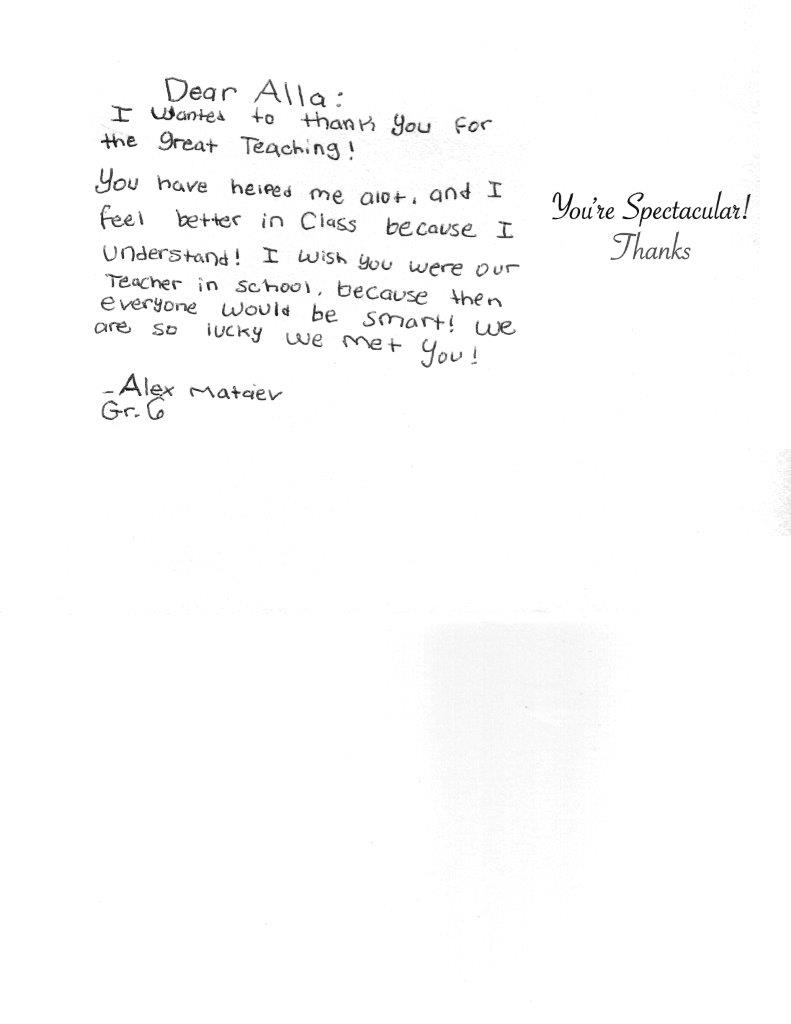 Dear Alla:
I wanted to thank you for
the great Teaching!
You have helped me alot, and I
feel better in Class because I
understand! I wish you were our
Teacher in school, because then
everyone would be smart! We
are so lucky we met you!
- Alex Mataev
Gr. 6
You're Spectacular!
Thanks